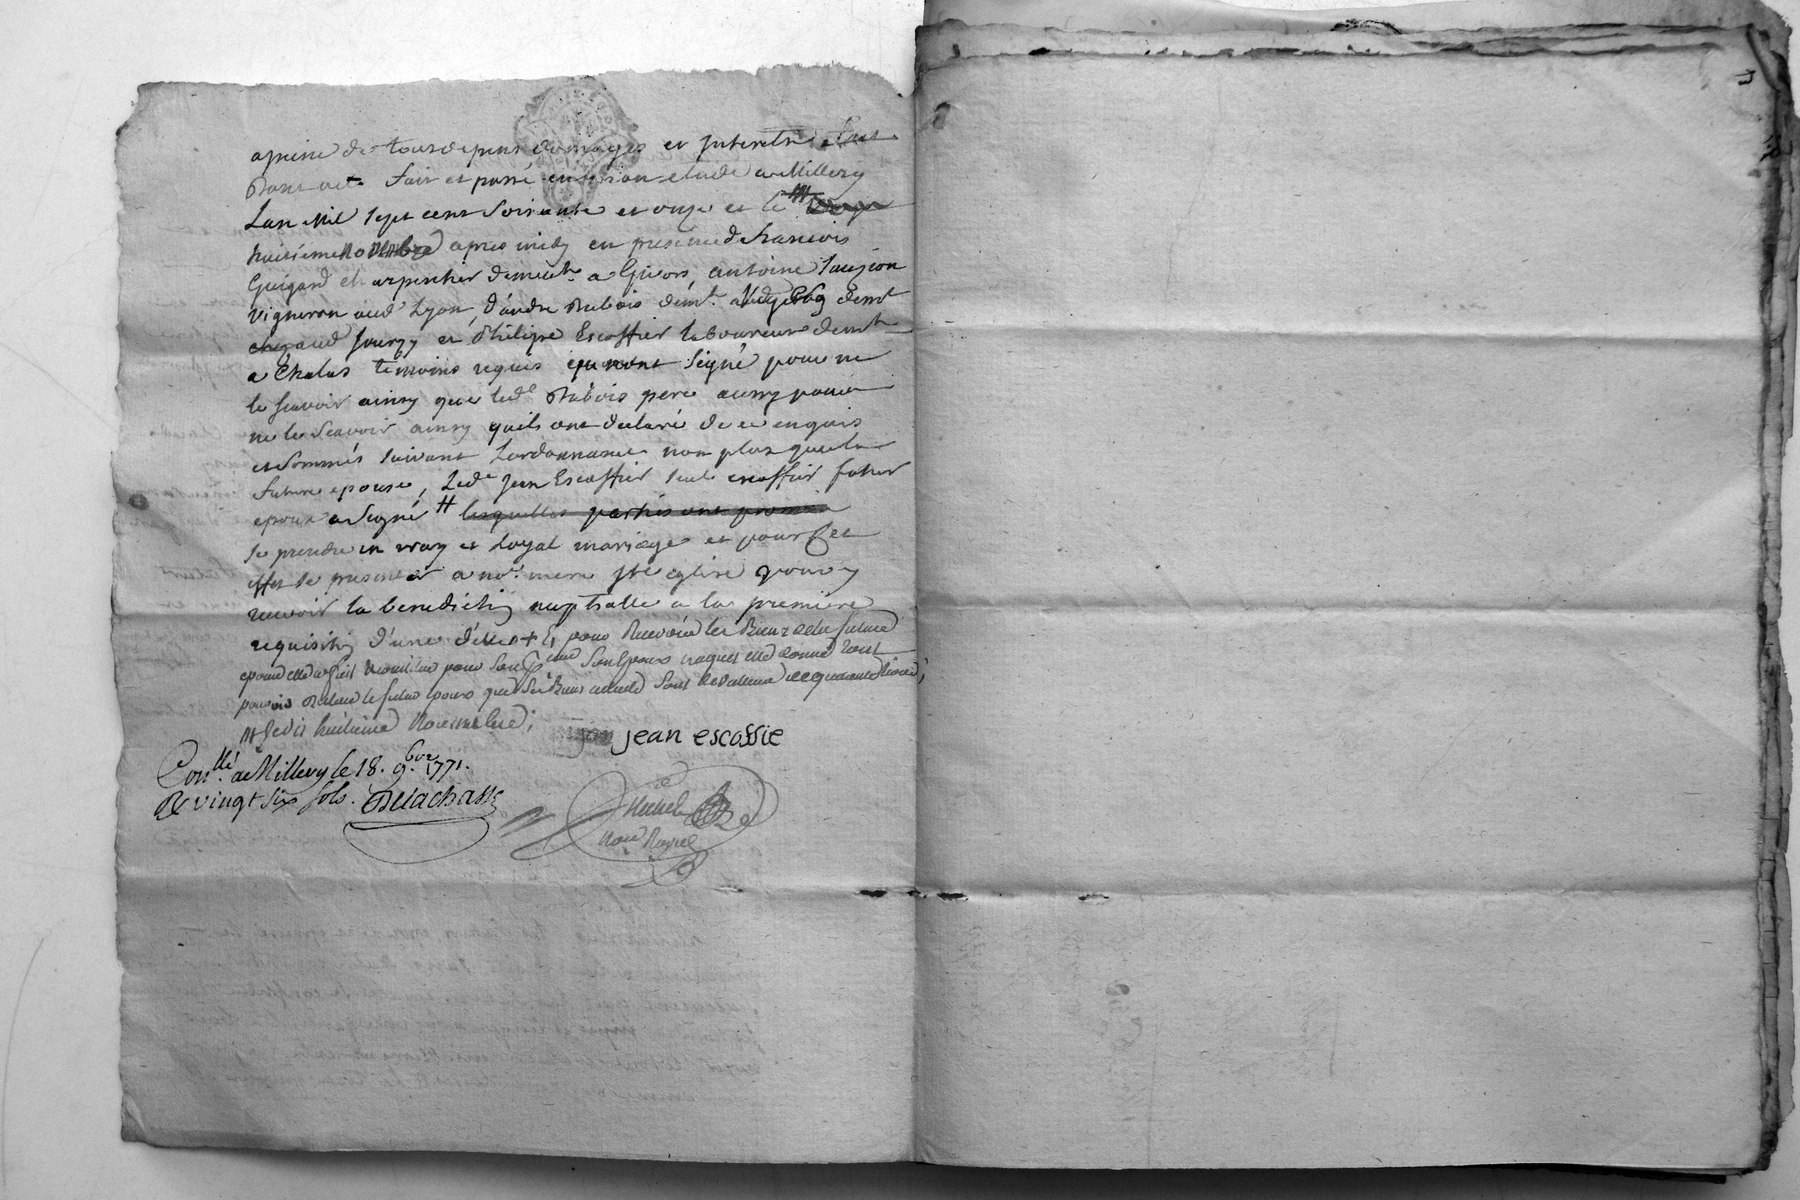 a peine de tous depens domages et interets
Dont acte fait et passé en mon etude a Millery
Lan mil sept cent soixante et onze et le
huitieme novembre apres midy en presence de francois
Guigard charpentier demeurt. a Givors, antoine
vigneron aud Lyon, d'andre Dubois demt. demt
et Philipe Escoffier laboureur demt
a Chalas temoins requis qui n'ont signé pour ne
le scavoir ainsy que led. Dubois pere aussy pour
ne le scavoir ainsy quils ont declaré de ce enquis
et sommés suivant Lordonnance non plus que la
future epouse, Led. jean Escoffier seul escoffier futur
epoux a signé # lesquelles parties ont promis
se prendre en vray et loyal mariage et pour cet
effet se presenter a notre. mere ste eglise pour y
recevoir la benediction nuptialle a la premiere
requisition d'une d'elles + Et pour Recevoir les Biens de la future
epouse elle a fait pour son futur epoux auquel elle donne tout
pouvoir le futur epoux que ses Biens sont de valleur de quarante livres;
# Ledit huitieme Novembre;
jean escoffie
Conllé. a Millery le 18. 9bre 1771.
R vingt six sols. Delachass
Nore Royal